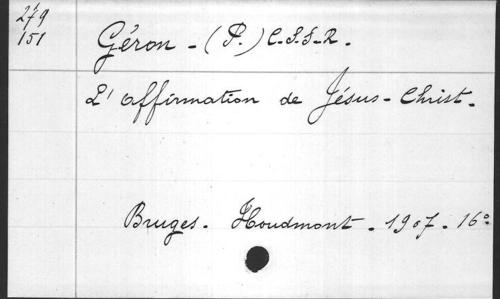 279
151
Géron - (P.) C.S.S.R.
L'affirmation de Jésus-Christ.
Bruges. Houdmont. 1907. 16°